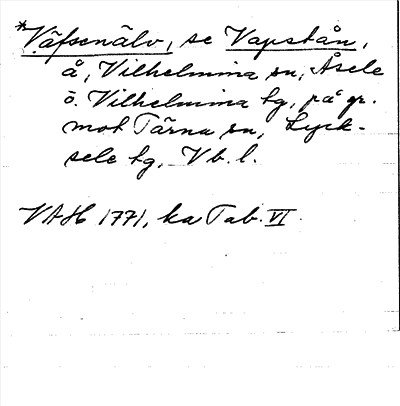 *Väfsenälv, se Vapstån,
å, Vilhelmina sn, Åsele
o. Vilhelmina tg, på gr.
mot Tärna sn, Lyck-
sele tg, Vb. l.
VAH 1771, ka Tab. VI.